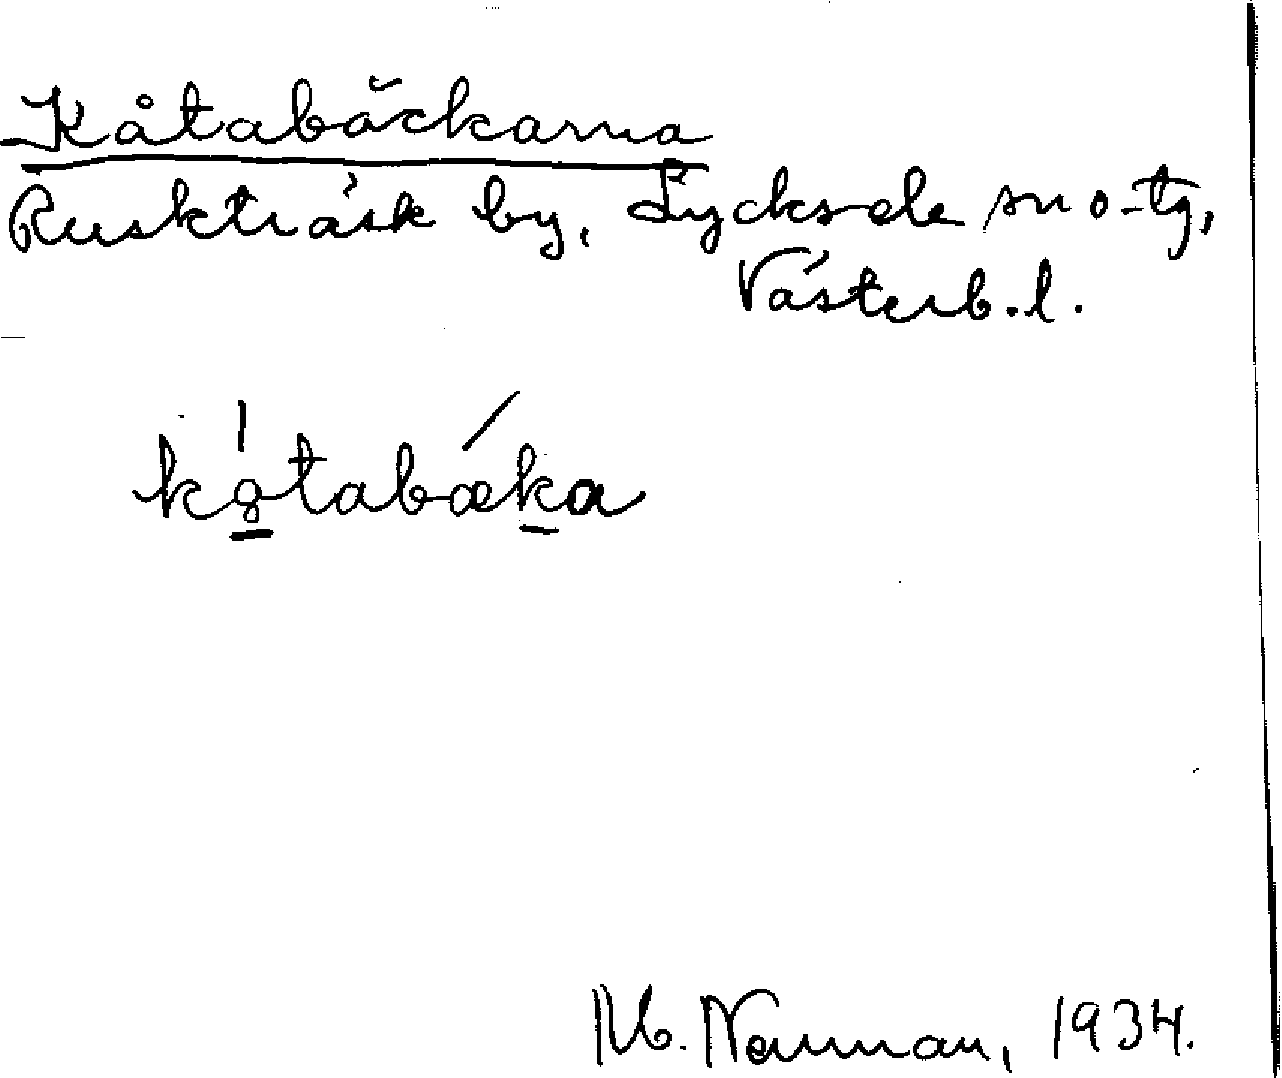 Kåtabäckarna
Ruskträsk by, Lycksele sn o-tg,
Västerb.l.
kåtabæka
Nb. Nenman, 1934.